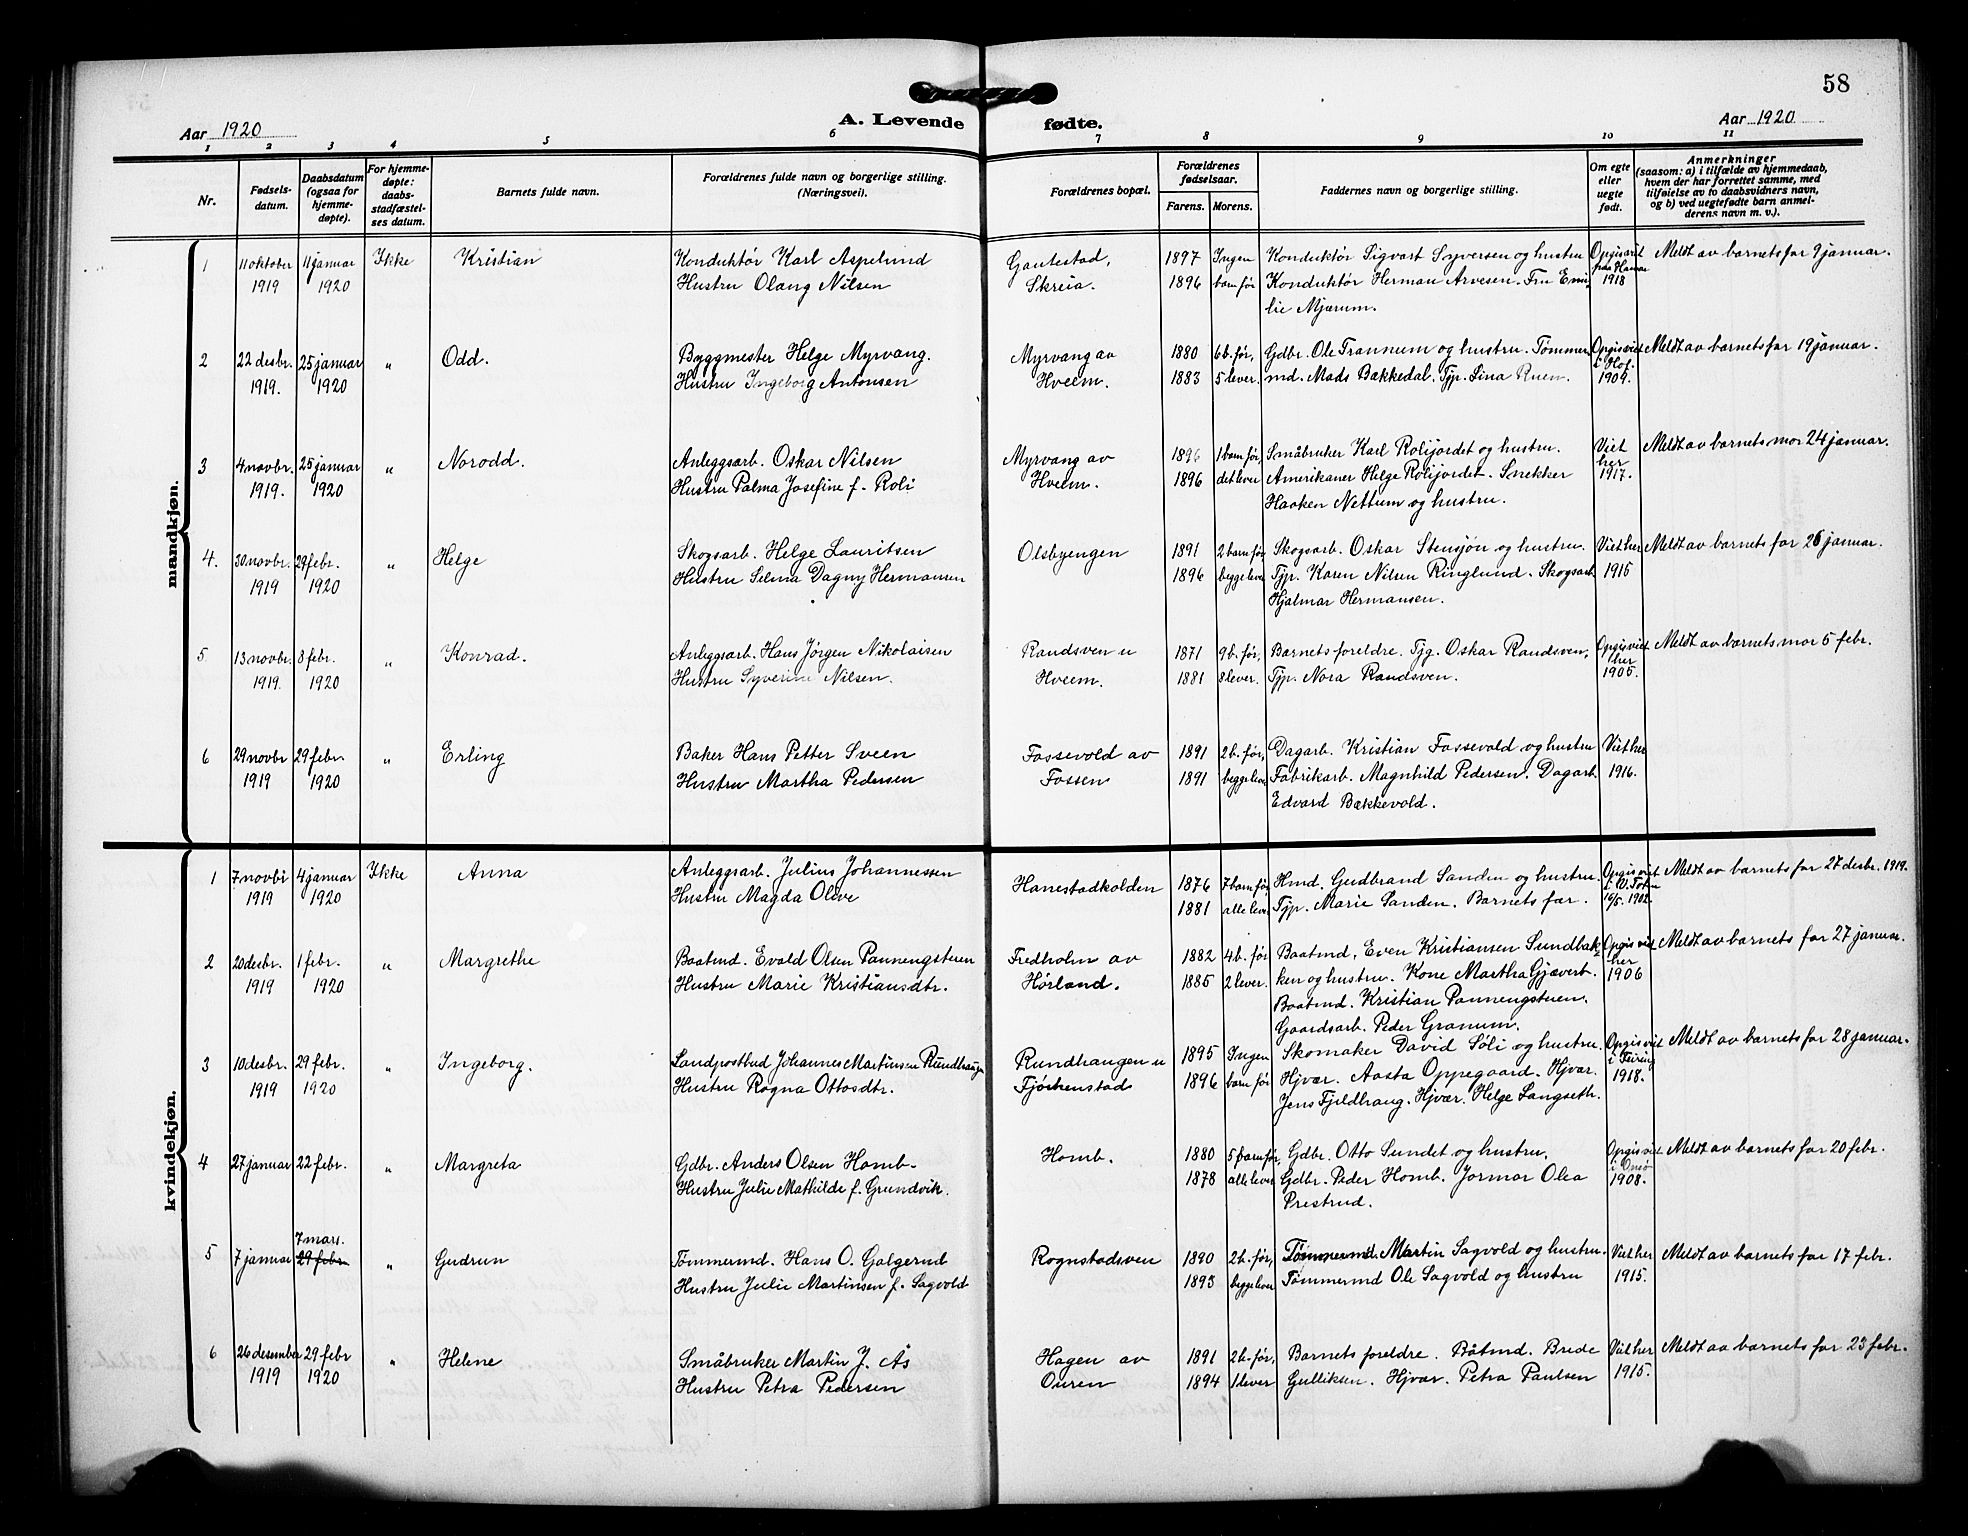 58
Aar 1920
A. Levende fødte.
Aar 1920
1 2 3 4 5 6 7 8 9 10 11
Nr.
Fødsels-
datum.
Daabsdatum
(ogsaa for
hjemme-
døpte).
For hjemme-
døpte:
daabs-
stadfæstel-
ses datum.
Barnets fulde navn.
Forældrenes fulde navn og borgerlige stilling.
(Næringsvei).
Forældrenes bopæl.
Forældrenes
fødselsaar.
Farens. Morens.
Faddernes navn og borgerlige stilling.
Om egte
eller
uegte
født.
Anmerkninger
(saasom: a) i tilfælde av hjemmedaab,
hvem der har forrettet samme, med
tilføielse av to daabsvidners navn,
og b) ved uegtefødte barn anmel-
derens navn m. v.).
mandkjøn.
1 11 oktober 11 januar Ikke Kristian Konduktør Karl Aspelund Gautestad, 1897 Ingen Konduktør Sigvart Syversen og hustru Meldt av barnets far 9 januar.
1919 1920 Hustru Olang Nilsen Skreia. 1896 barn før Konduktør Herman Arvesen. Fru Emi- 1918
lie Mjærum.
2 22 desbr. 25 januar " Odd. Byggmester Helge Myrvang. Myrvang av 1880 6 b. før, Gdbr. Ole Frannum og hustru. Tømmer- Opgis viet Meldt av barnets far 19 januar.
1919. 1920 Hustru Ingeborg Antonsen Hveem. 1883 5 lever. md. Mads Bakkedal. Typ. Lina Ruen. i Hof. 1909.
3 4 novbr. 25 januar " Norodd. Anleggsarb. Oskar Nilsen Myrvang av 1896 1 barn før, Småbruker Karl Rolijordet og hustru. Viet Meldt av barnets mor 24 januar.
1919. 1920 Hustru Palma Josefine f. Roli Hveem. 1896 det lever Amerikaner Helge Rolijordet. Snekker her 1917.
Haaken Nettum og hustru.
4. 30 novbr. 29 febr. " Helge Skogsarb. Helge Lauritsen Olsbyengen 1891 2 barn før Skogsarb. Oskar Stensjøn og hustru. Viet her Meldt av barnets far 26 januar.
1919 1920 Hustru Selma Dagny Hermansen 1896 begge lever Typ. Karen Nilsen Ringlund. Skogsarb. 1915
Hjalmar Hermansen.
5 13 novbr. 8 febr. " Konrad. Anleggsarb. Hans Jørgen Nikolaisen Randsven u 1871 9 b. før, Barnets foreldre. Tjg. Oskar Randsven, Opgis viet Meldt av barnets mor 5 febr.
1919. 1920 Hustru Syverine Nilsen. Hveem. 1881 8 lever. Typ. Nora Randsven. her 1905.
6 29 novbr 29 febr. " Erling Baker Hans Petter Sveen Fossevold av 1891 2 b. før, Dagarb. Kristian Fossevold og hustru Viet her
1919 1920 Hustru Martha Pedersen Fossen 1891 begge lever Fabrikarb. Magnhild Pedersen. Dagarb. 1916.
Edvard Bækkevold.
kvindekjøn.
1 7 novbr 4 januar Ikke Anna Anleggsarb. Julius Johannessen Hanestadkolden 1876 7 barn før, Hmd. Gudbrand Sanden og hustru. Opgis viet Meldt av barnets far 27 desbr. 1919.
1919 1920 Hustru Magda Olive 1881 alle lever Typ. Marie Sanden. Barnets far. i V. Toten 16/5. 1902.
2 20 desbr. 1 febr. " Margrethe Baatmd. Evald Olsen Pannengstuen Fredholm av 1882 4 b. før Baatmd. Even Kristiansen Sundbak- Opgis viet Meldt av barnets far 27 januar.
1919 1920 Hustru Marie Kristiansdtr. Hørland. 1885 2 lever. ken og hustru. Kone Martha Gjævert. her 1906
Baatmd. Kristian Pannengstuen.
Gaardsarb. Peder Granum.
3 10 desbr. 29 febr. " Ingeborg. Landpostbud Johannes Martinsen Rundhaugen Rundhaugen u 1895 Ingen Skomaker David Søli og hustru. Opgis viet Meldt av barnets far 28 januar.
1919 1920 Hustru Rogna Ottosdtr. 1896 barn før Hjvær. Aasta Oppegaard. Hjvær. i Feiring 1918.
Jens Fjeldhaug. Hjvær. Helge Langseth.
4 27 januar 22 febr. " Margreta Gdbr. Anders Olsen Homb. Homb. 1880 5 barn før, Gdbr. Otto Sundet og hustru. Opgis viet Meldt av barnets far 20 febr.
Hustru Julie Mathilde f. Grundvik. 1878 alle lever Gdbr. Peder Homb. Jormor Olea 1908.
Prestrud.
5 7 januar 7 mars. 29 febr. " Gudrun Tømmermd. Hans O. Galgerud Rognstadsven 1890 2 b. før, Tømmermd. Martin Sagvold og hustru. Viet her Meldt av barnets far 17 febr.
Hustru Julie Martinsen f. Sagvold 1893 begge lever Tømmermd Ole Sagvold og hustru 1915.
6 26 desember 29 febr " Helene Småbruker Martin J. Ås Hagen av 1891 2 b. før, Barnets foreldre. Båtmd. Brede Viet her Meldt av barnets far 23 febr.
1919 1920 Hustru Petra Pedersen Ouren 1894 1 lever Gulliksen. Hjvær. Petra Paulsen 1915.